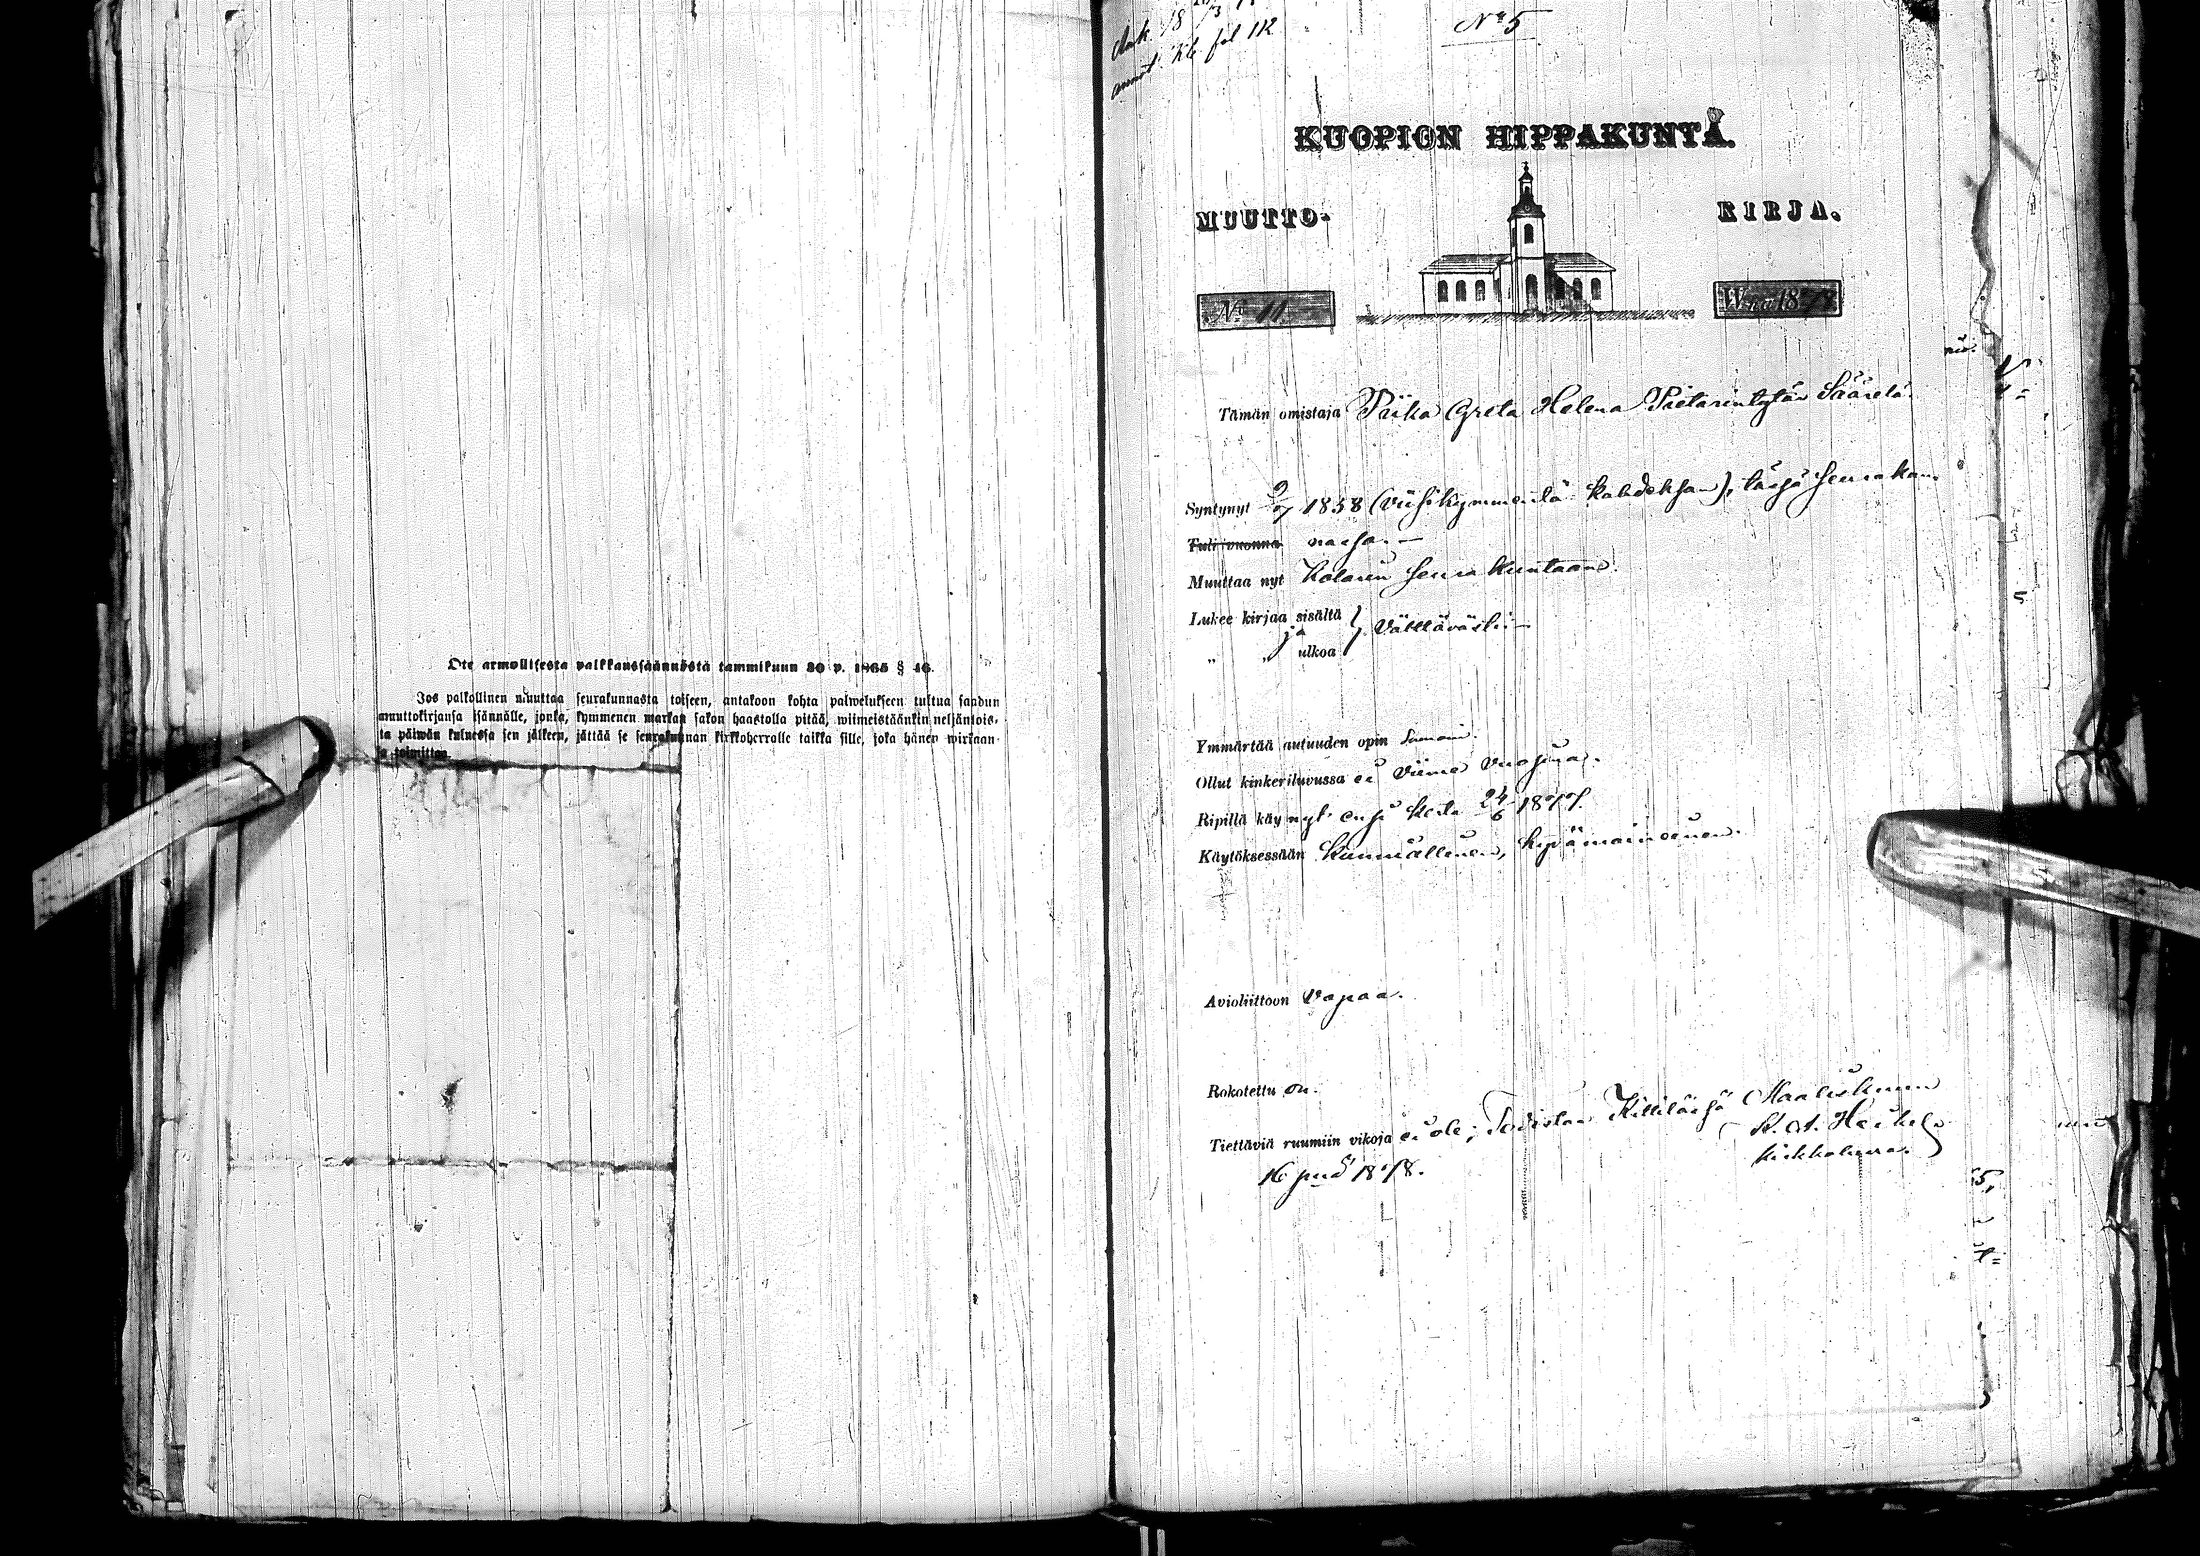 Ote armollisesta palkkaussäännöstä tammikuun 30 p. 1865 § 46.
Jos palkollinen muuttaa seurakunnasta toiseen, antakoon kohta palwelukseen tultua saadun
muuttokirjansa isännälle, jonka, kymmenen markan sakon haastolla pitää, wiimeistäänkin neljäntois-
ta päiwän kuluessa sen jälkeen, jättää se seurakunnan kirkkoherralle taikka sille, joka hänen wirkaan-
sa toimittaa.
annot. Kb fol 112
No 5
KUOPION HIPPAKUNTA.
MUUTTO- KIRJA.
No 11 Wnna 1878
Tämän omistaja Piika Greta Helena Pietarintytär Säärelä.
Syntynyt 9/7 1858 (viisikymmentä kahdeksan), tässä seurakun-
Tuli vuonna nassa. —
Muuttaa nyt Kolarin seurakuntaan.
Lukee kirjaa sisältä } Välttävästi —
ja
" " ulkoa
Ymmärtää autuuden opin samoin.
Ollut kinkeriluvussa ei viime vuosina.
Ripillä käynyt ensi kerta 24/6 1877
Käytöksessään kunniallinen, hyvämaineinen.
Avioliittoon vapaa.
Rokotettu on.
Tiettäviä ruumiin vikoja ei ole; Todistaa Kittilässä Maaliskuun
16 pnä 1878.
K. A. Heikel
kirkkoherra.